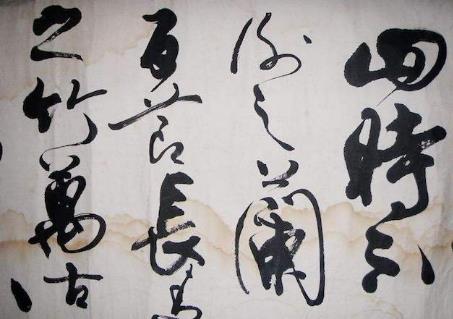 四時不
謝之蘭
百節長青
之竹萬古